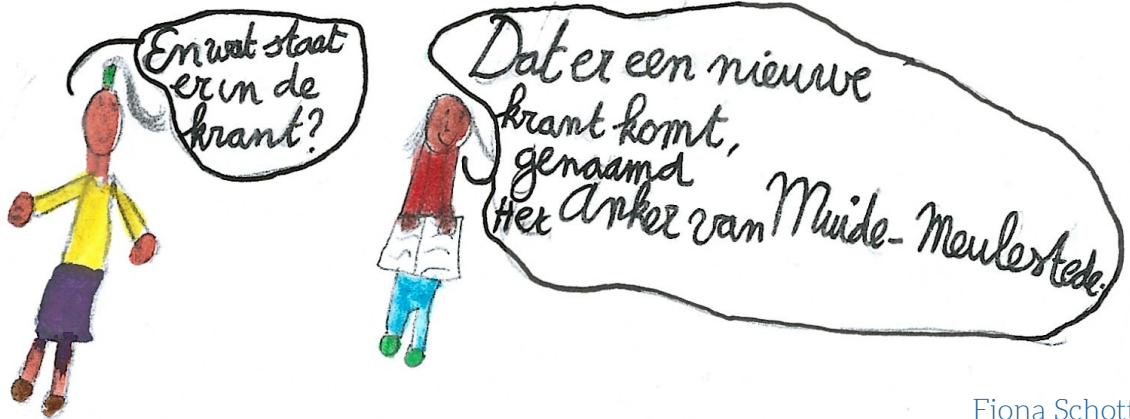 En wat staat
er in de
krant?
Dat er een nieuwe
krant komt,
genaamd
Het Anker van Muide-Meulestede.
Fiona Schott